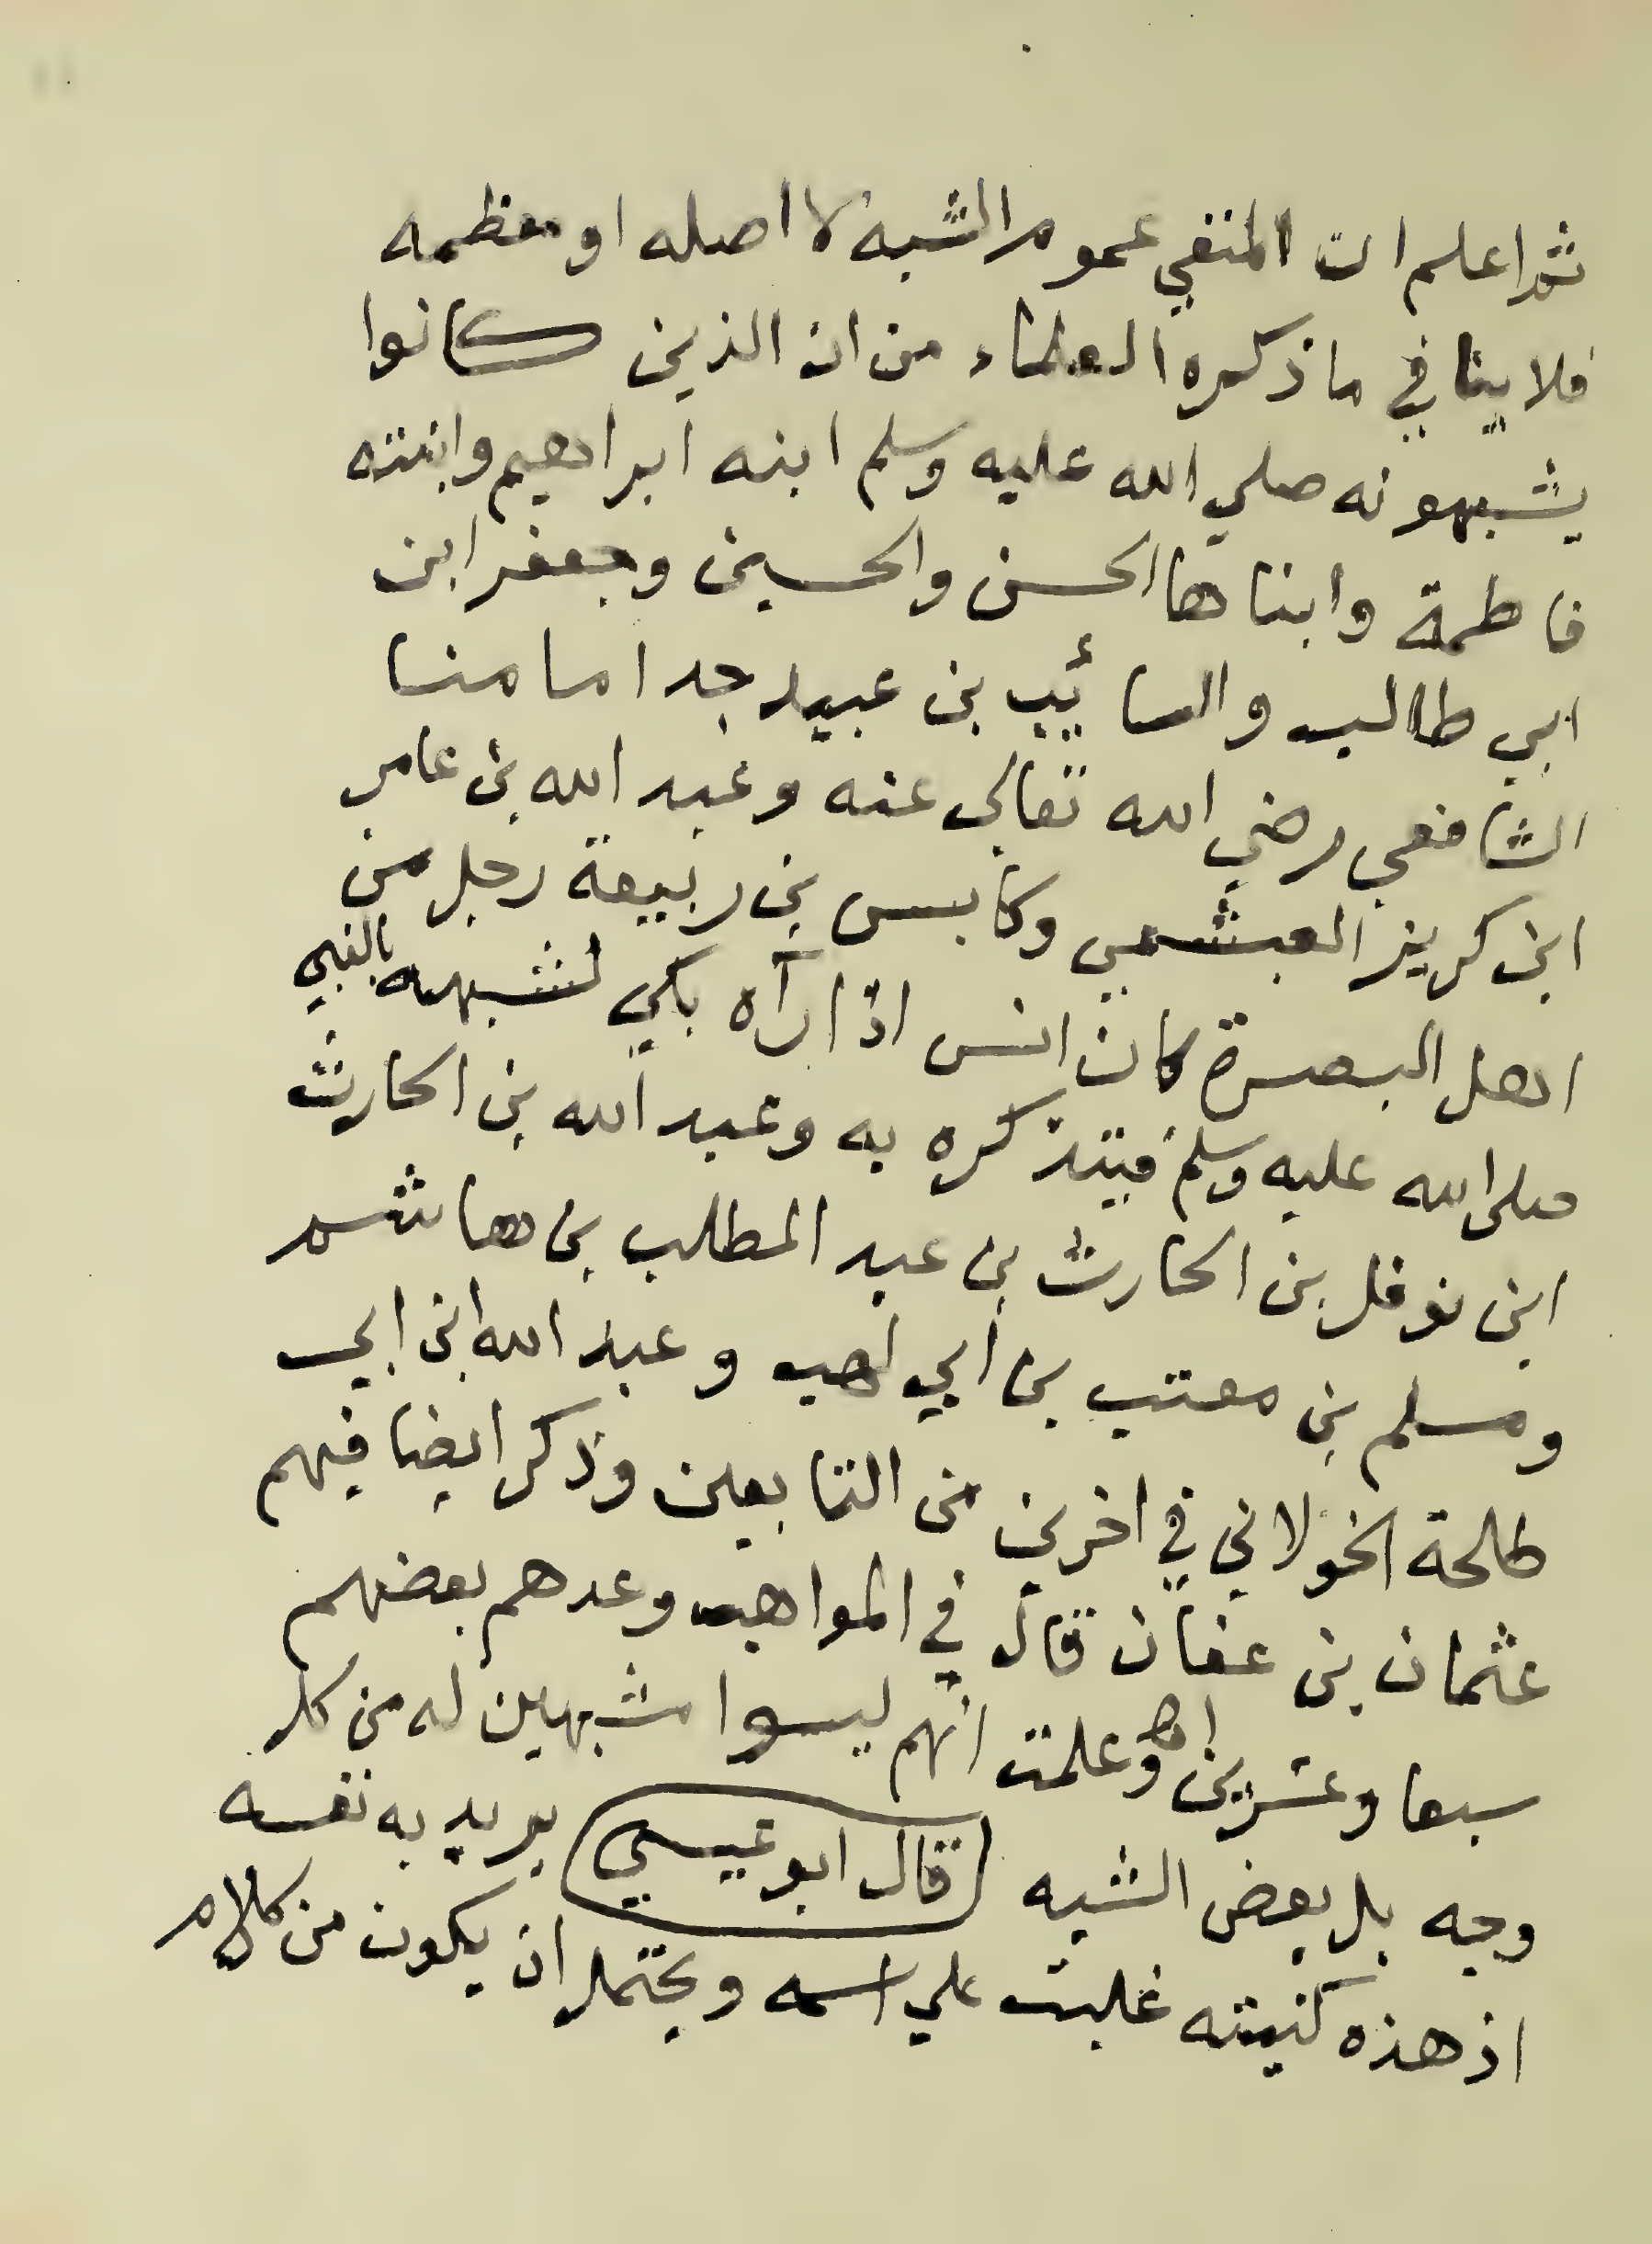 ثم اعلم ان المنفي عموم الشبه لا اصله او معظمه
فلا ينافي ما ذكره العلماء من ان الذين كانوا
يشبهونه صلي الله عليه وسلم ابنه ابراهيم وابنته
فاطمة وابناها الحسن والحسين وجعفر ابن
ابي طالب والسائيب بن عبيد جد امامنا
الشافعي رضي الله تعالى عنه وعبد الله بن عامر
ابن كريز العبشمي وكابس بن ربيعة رجل من
اهل البصرة كان انس اذا رآه بكي لشبهه بالنبي
صلى الله عليه وسلم فيتذكره به وعبد الله بن الحارث
ابن نوفل بن الحارث بن عبد المطلب بن هاشم
ومسلم بن معتب بن ابي لهب وعبد الله ابن ابي
طلحة الخولاني في اخرين من التابعين وذكر ايضا فيهم
عثمان بن عفان قال في المواهب وعدهم بعضهم
سبعا وعشرين اه وعلمت انهم ليسوا مشبهين له من كل
وجه بل بعض الشبه قال ابو عيسي يريد به نفسه
اذ هذه كنيته غلبت علي اسمه ويحتمل ان يكون من كلام